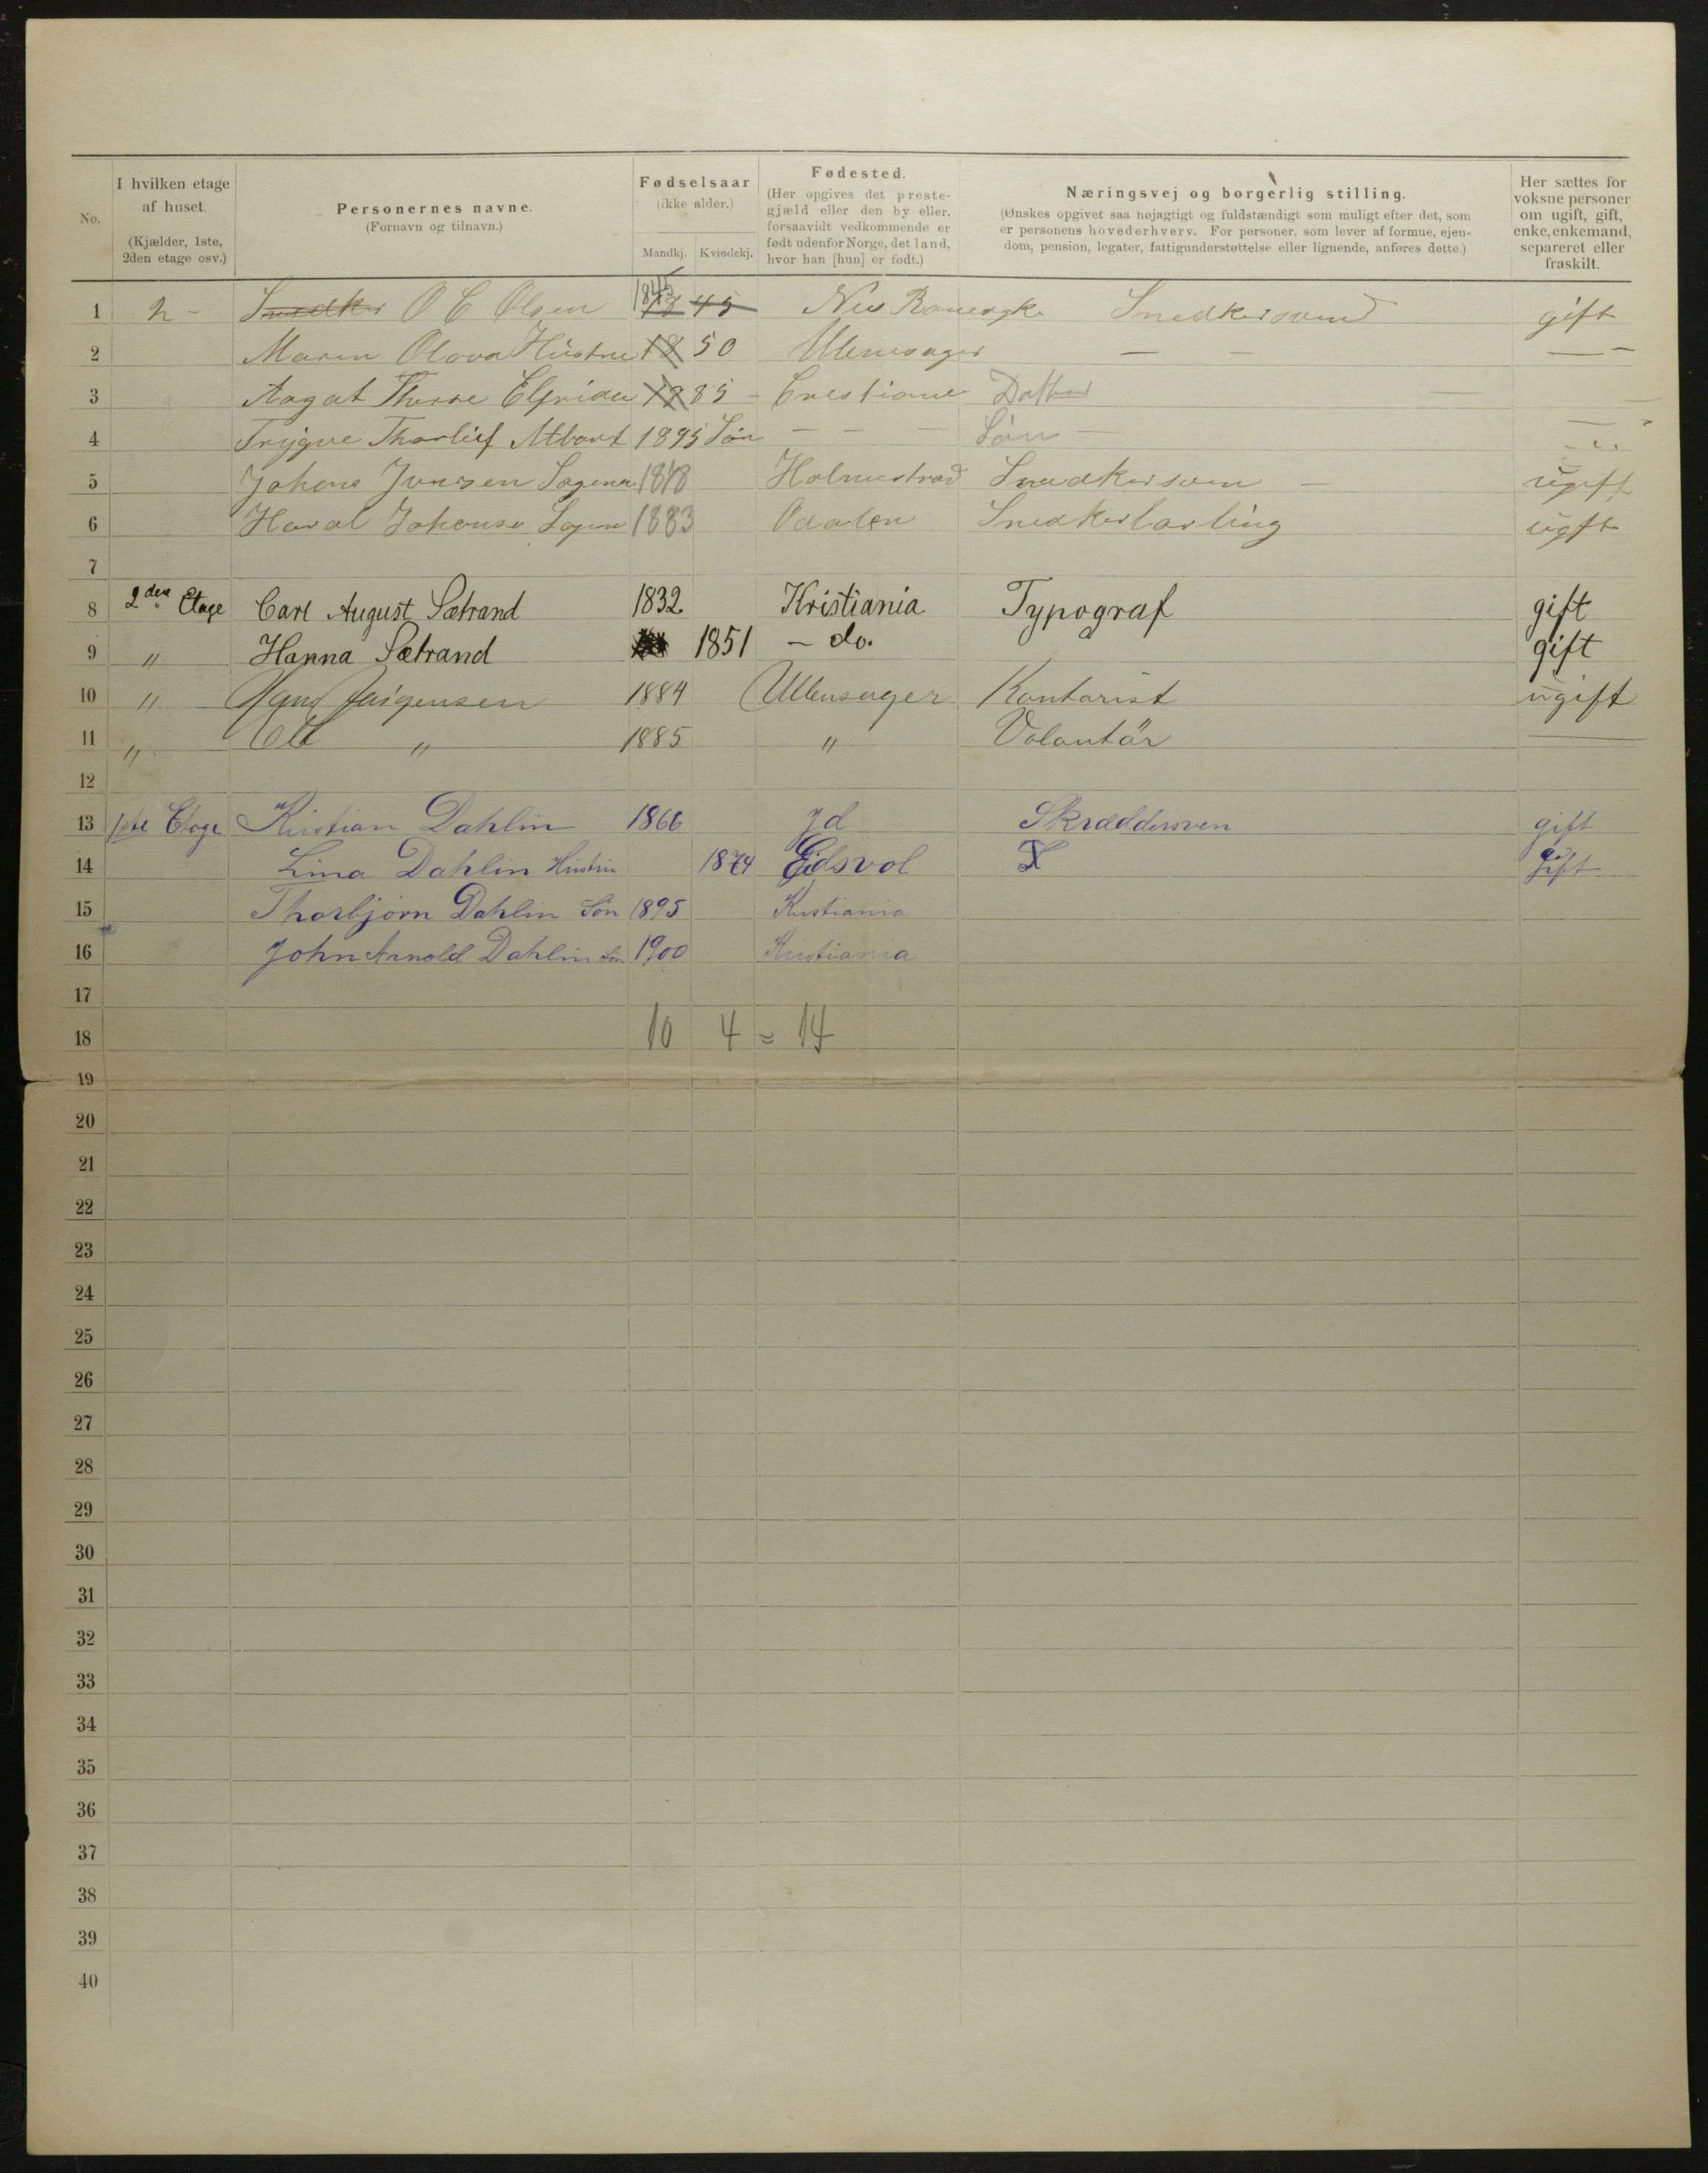 No.
I hvilken etage af huset. (Kjælder, 1ste, 2den etage osv.)
Personernes navne. (Fornavn og tilnavn.)
Fødselsaar (ikke alder.) Mandkj. Kvindekj.
Fødested. (Her opgives det prestegjæld eller den by eller, forsaavidt vedkommende er født udenfor Norge, det land, hvor han [hun] er født.)
Næringsvej og borgerlig stilling. (Ønskes opgivet saa nøjagtigt og fuldstændigt som muligt efter det, som er personens hovederhverv. For personer, som lever af formue, ejendom, pension, legater, fattigunderstøttelse eller lignende, anføres dette.)
Her sættes for voksne personer om ugift, gift, enke, enkemand, separeret eller fraskilt.
1 2 - Snedker O C Olsen 1845 18 45 Nes Snedkersvend gift
2 Maren Olava Hustru 18 50 Ulensager — — — -
3 Aagat Elfride 18 85 - Datter —
4 Trygve Thorlief Albert 1895 Søn — — — Søn —
5 Johans 1878 Holmestrad Snedkersven — ugift
6 Haral 1883 Odalen Snedkerlarling ugft
7
8 2den Etage Carl August Sætrand 1832. Kristiania Typograf gift
9 " Hanna Sætrand 1851 - do. gift
10 " Hans Jørgensen 1884 Ullensager Kontorist ugift
11 " Ole " 1885 " Volontör —
12
13 1ste Etage Kristian Dahlin 1866 Id Skræddersven gift
14 Lina Dahlin Hustru 1874 Eidsvol gift
15 Thorbjørn Dahlin Søn 1895 Kristiania
16 John Arnold Dahlin Søn 1900 Kristiania
17
18 10 4 = 14
19
20
21
22
23
24
25
26
27
28
29
30
31
32
33
34
35
36
37
38
39
40